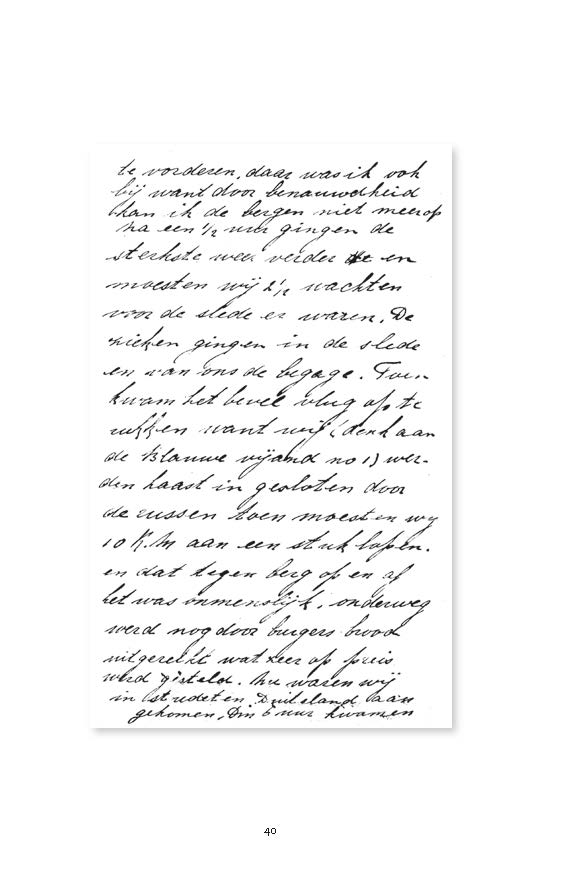 te vorderen, daar was ik ook
bij want door benauwdheid
kan ik de bergen niet meer op
na een ½ uur gingen de
sterkste weer verder en
moesten wij 2½ wachten
voor de slede er waren. De
zieken gingen in de slede
en van ons de begage. Toen
kwam het bevel vlug op te
rukken want wij (denk aan
de Blauwe vijand no 1) wer-
den haast in gesloten door
de russen toen moesten wij
10 K.M aan een stuk lopen.
en dat tegen berg op en af
het was onmenslijk, onderweg
werd nog door burgers brood
uitgereikt wat zeer op prijs
werd gesteld. Nu waren wij
in studeten Duitsland aan
gekomen, Om 6 uur kwamen
40